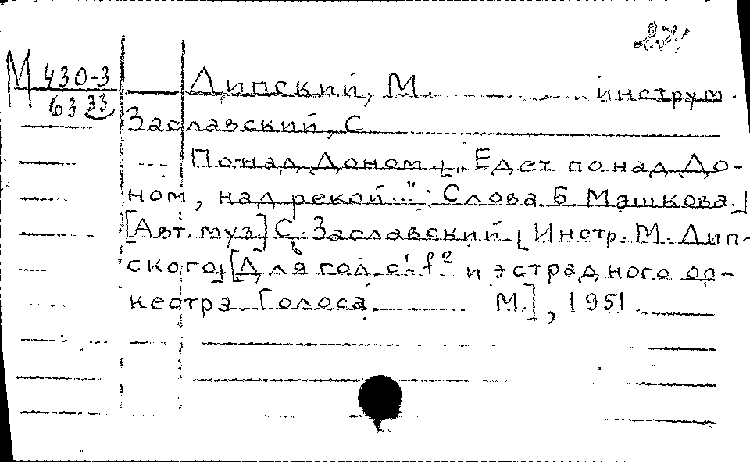 М 430-3 Липский, М. инструм.
63 33 Заславский, С
Понад Доном [„Едет понад До-
ном, над рекой...": Слова Б. Машкова.]
[Авт. муз] С. Заславский [Инстр. М. Лип-
ского] [Для гол. и эстрадного ор-
кестра Голоса М.], 1951